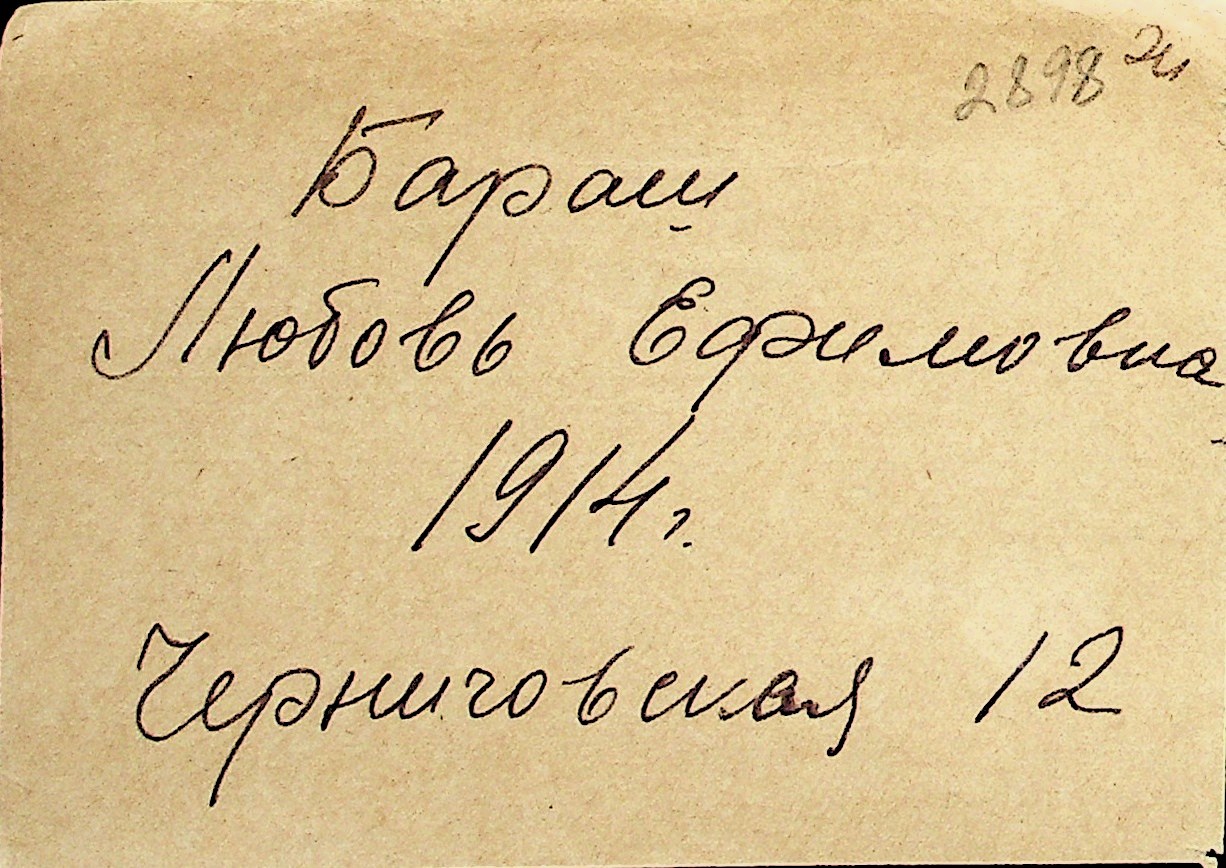 2898
Бараш
Любовь Ефимовна
1914г.
Черниговская 12